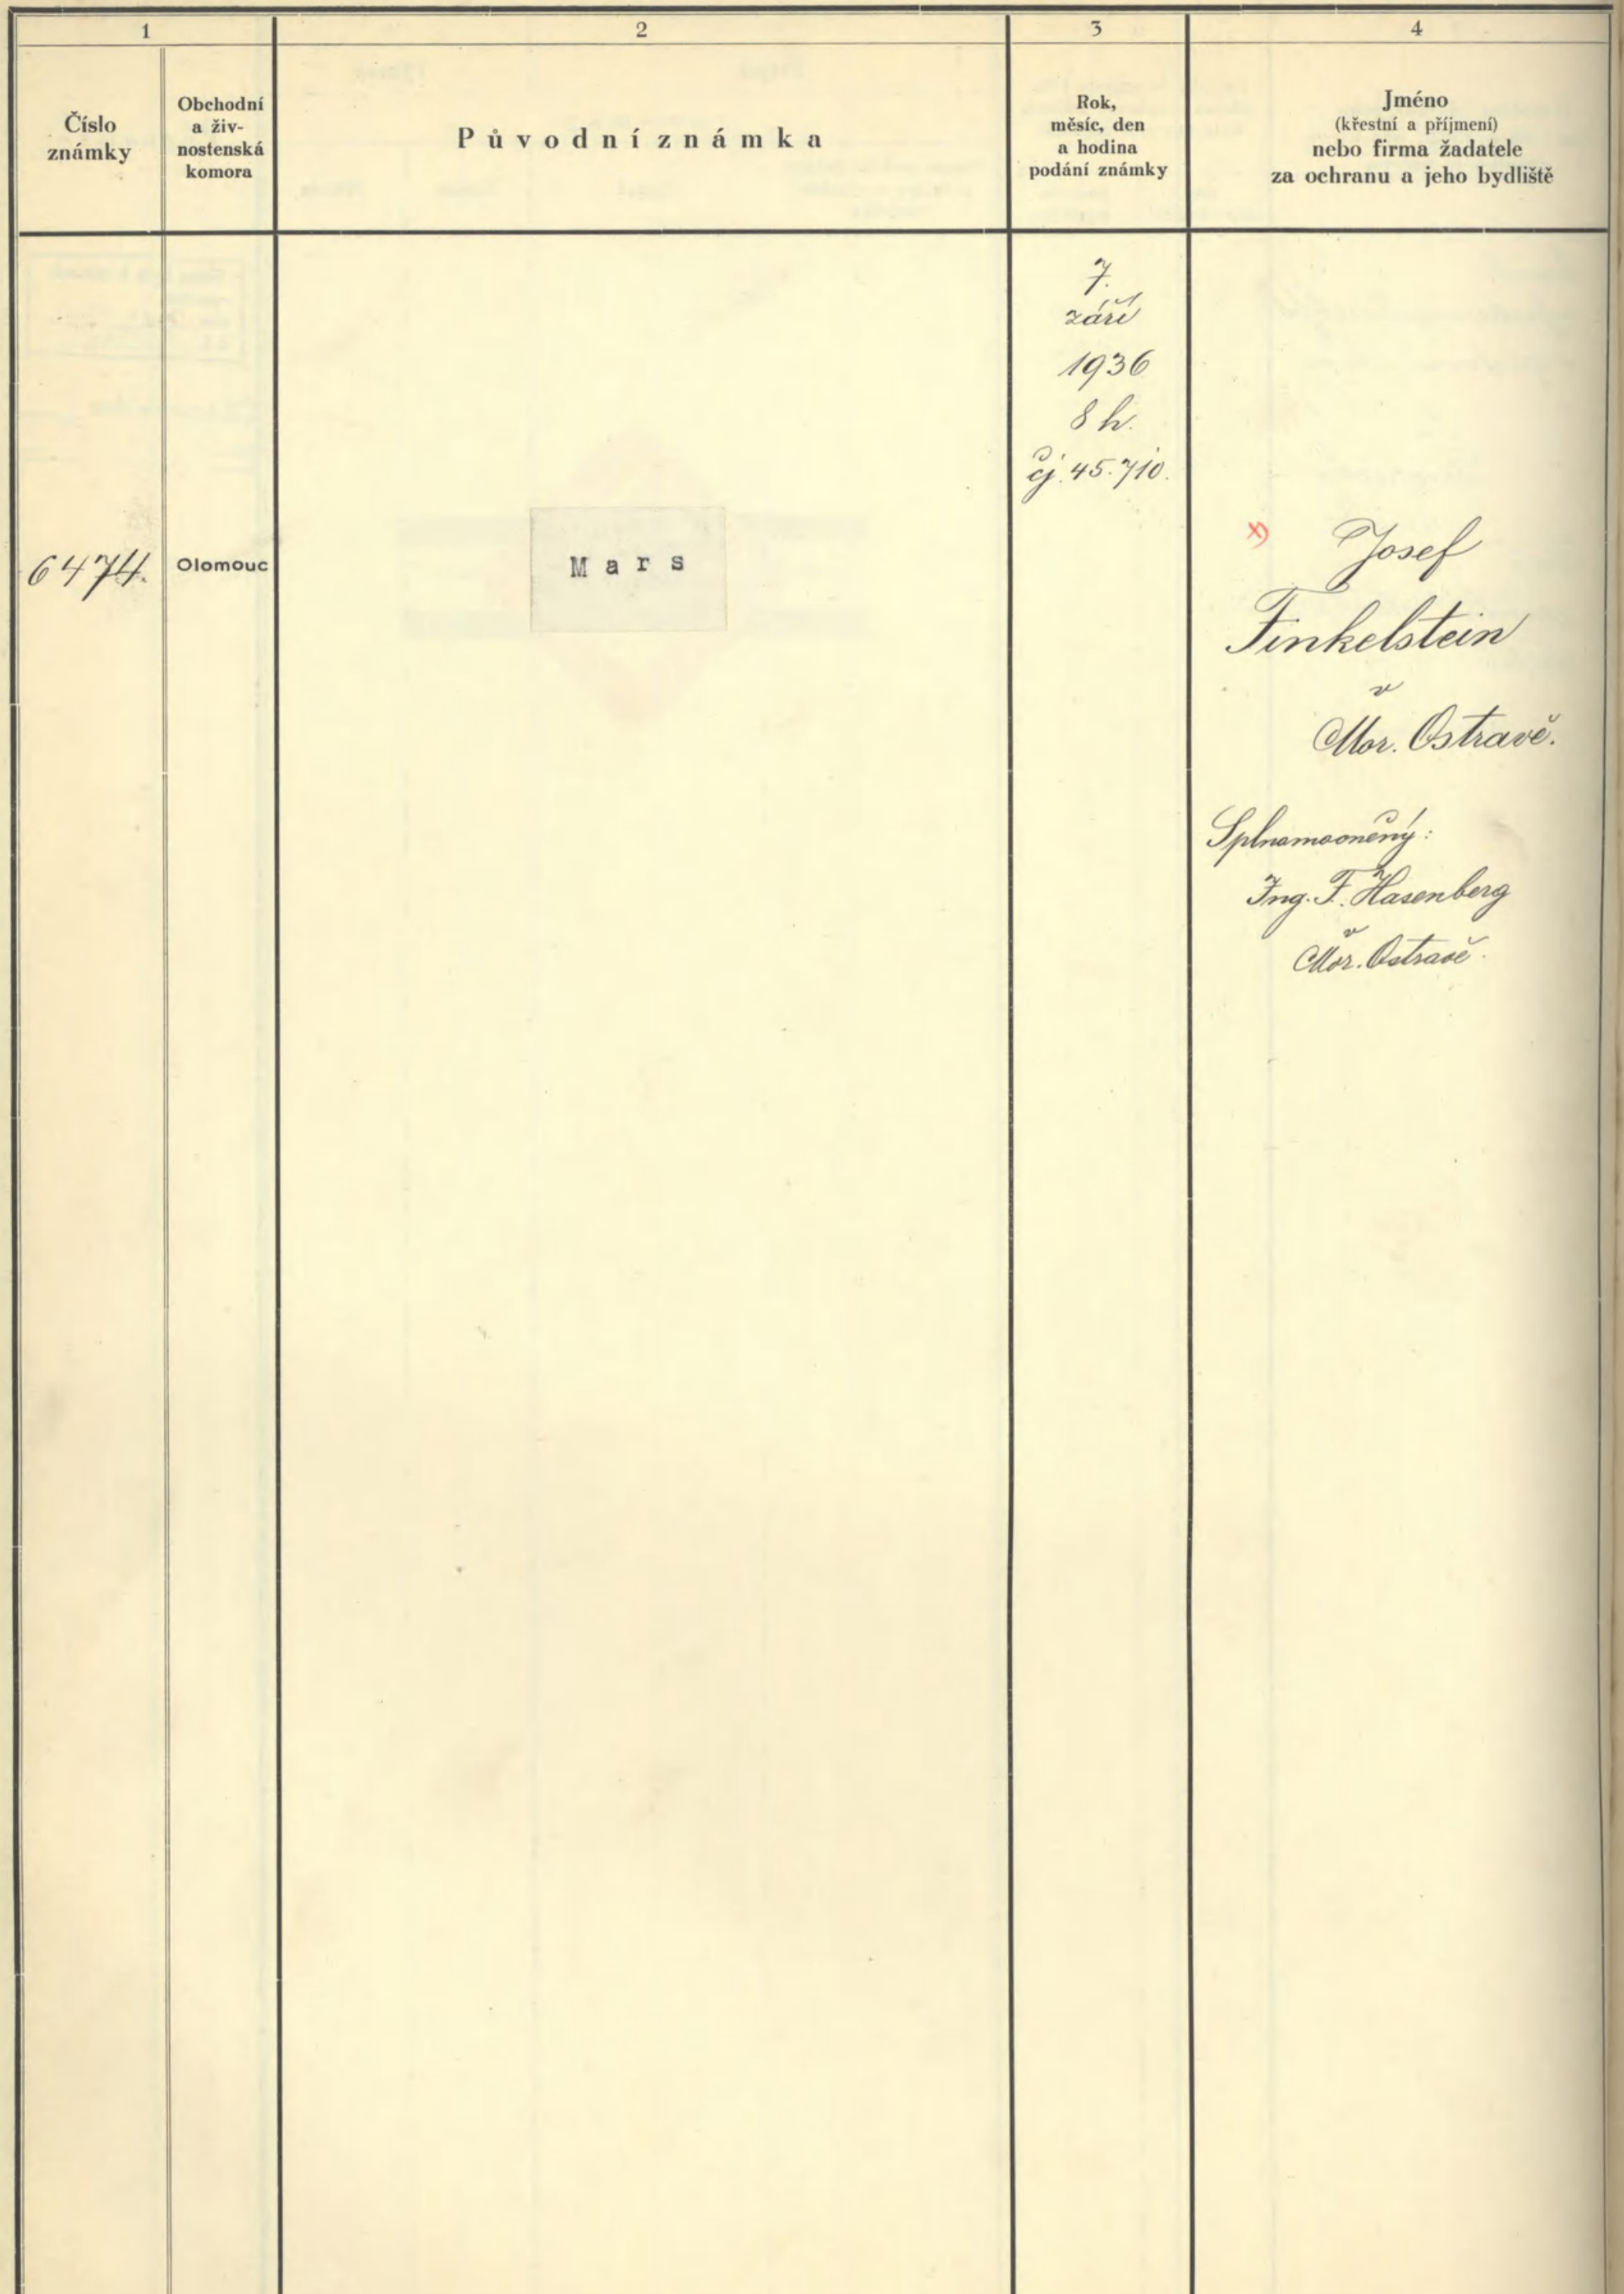 1
2
3
4
Číslo
známky
Obchodní
a živ-
nostenská
komora
Původní známka
Rok,
měsíc, den
a hodina
podání známky
Jméno
(křestní a příjmení)
nebo firma žadatele
za ochranu a jeho bydliště
7.
září
1936
8 h.
čj. 45.710.
6474.
Olomouc
Mars
x)
Josef
Finkelstein
v
Mor. Ostravě.
Splnomocněný:
Ing. F. Hasenberg
v
Mor. Ostravě.